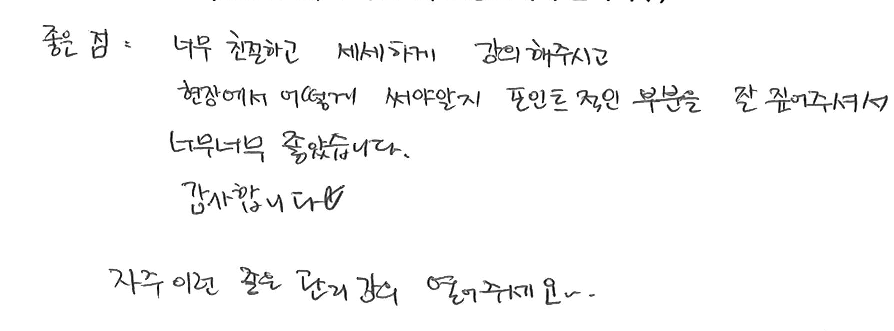 좋은 점 : 너무 친절하고 세세하게 강의해주시고
현장에서 어떻게 써야할지 포인트적인 부분을 잘 짚어주셔서
너무너무 좋았습니다.
감사합니다♡
자주 이런 좋은 관리 강의 열어주세요~.